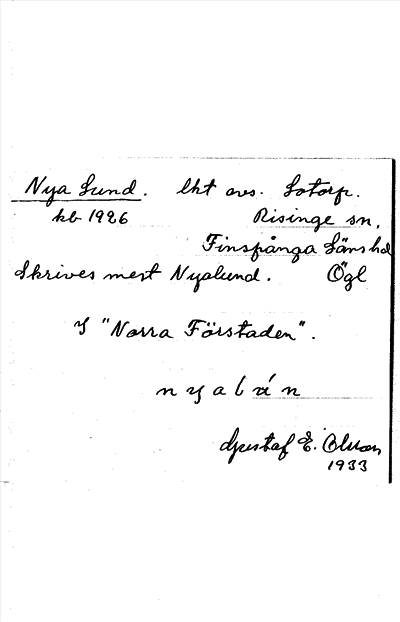 Nya Lund. lht avs. Lotorp.
kb 1926 Risinge sn,
Finspånga Läns hd
Skrives mest Nyalund. Ögl
I "Norra Förstaden".
Gustaf E. Olson
1933